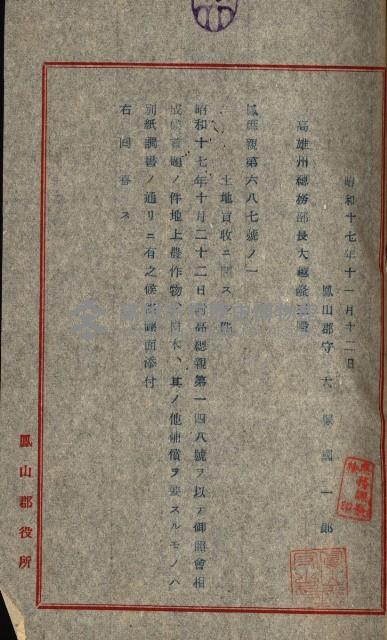 昭和十七年十一月十二日
鳳山郡守 大 國一郎
高雄州總務部長大 殿
鳳庶親第六八七號ノ一
土地買收ニ關スル件
昭和十七年十月二十二日 總親第一四八號ヲ以テ御照會相
成 首題ノ件地上農作物 木、其ノ他補償ヲ要スルモノハ
別紙調書ノ通リニ有之候 圖面添付
右回 ス
鳳山郡役所